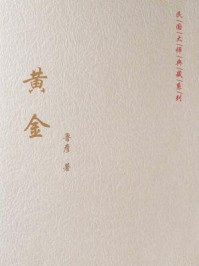 民国大师典藏系列
黄金
鲁彦 著